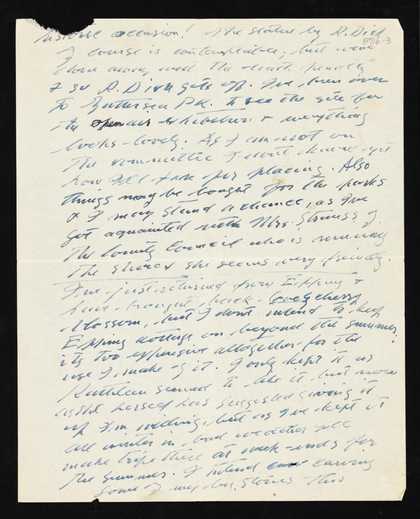 historic occasion! The statue by R. Dick
of course is contemplative, but
away, and the
I see R. Dick gets off. I've been over
to Battersea Pk. to see the site for
the open air exhibition & everything
looks lovely. As I am not on
the committee I don't know yet
how for placing. Also
things may be bought for the parks
& I may stand a chance, as I've
got aquainted with Mrs Strauss of
the County Council who is running
the show & she seems very friendly.
I've just returned from Epping &
have brought back gooseberry
blossom, but I don't intend to keep
Epping cottage on beyond the summer,
its too expensive altogether for the
use I make of it. I only kept it as
Kathleen seemed to like it, but now
as she herself has suggested giving it
up I'm willing, but as I've kept it
all winter in bad weather I'll
make trips there at week-ends for
the summer. I intend carving
some of my big stones this